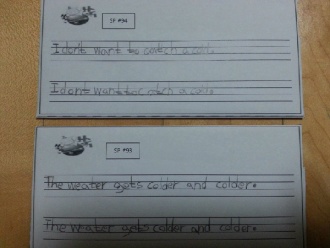 SF #94
I don't want to catch a cold.
I don't want to catch a cold.
SF #93
The weater gets colder and colder.
The weater gets colder and colder.